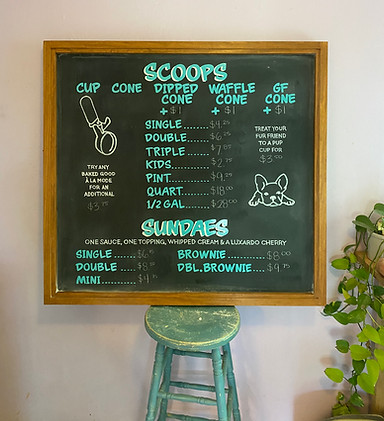 SCOOPS
CUP CONE DIPPED CONE + $1 WAFFLE CONE + $1 GF CONE + $1
SINGLE........$4.25
DOUBLE.......$6.25
TRIPLE........
KIDS...........
PINT...........
QUART........$18.00
1/2 GAL.......$28.00
TRY ANY
BAKED GOOD
À LA MODE
FOR AN
ADDITIONAL
TREAT YOUR
FUR FRIEND
TO A PUP
CUP FOR
$3.00
SUNDAES
ONE SAUCE, ONE TOPPING, WHIPPED CREAM & A LUXARDO CHERRY
SINGLE ..... BROWNIE ........$8.00
DOUBLE ..... DBL.BROWNIE....$9.75
MINI..........